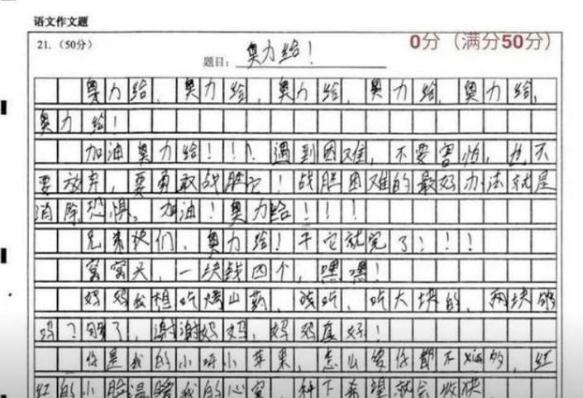 语文作文题
21. (50分)
题目: 奥力给!
0分 (满分50分)
奥力给, 奥力给, 奥力给, 奥力给, 奥力给,
奥力给!
加油奥力给!!! 遇到困难, 不要害怕, 也不
要放弃, 要勇敢战胜它! 战胜困难的最好办法就是
消除恐惧。加油! 奥力给!!!!
兄弟们, 奥力给! 干它就完了!!!
窝窝头, 一块钱四个, 嘿嘿!
妈妈我想吃烤山药, 吃大块的, 两块够
吗? 够了, 谢谢妈妈, 妈妈真好!
你是我的小呀小苹果, 怎么爱你都不嫌的, 红
红的小脸温暖我的心窝, 种下希望就会收获